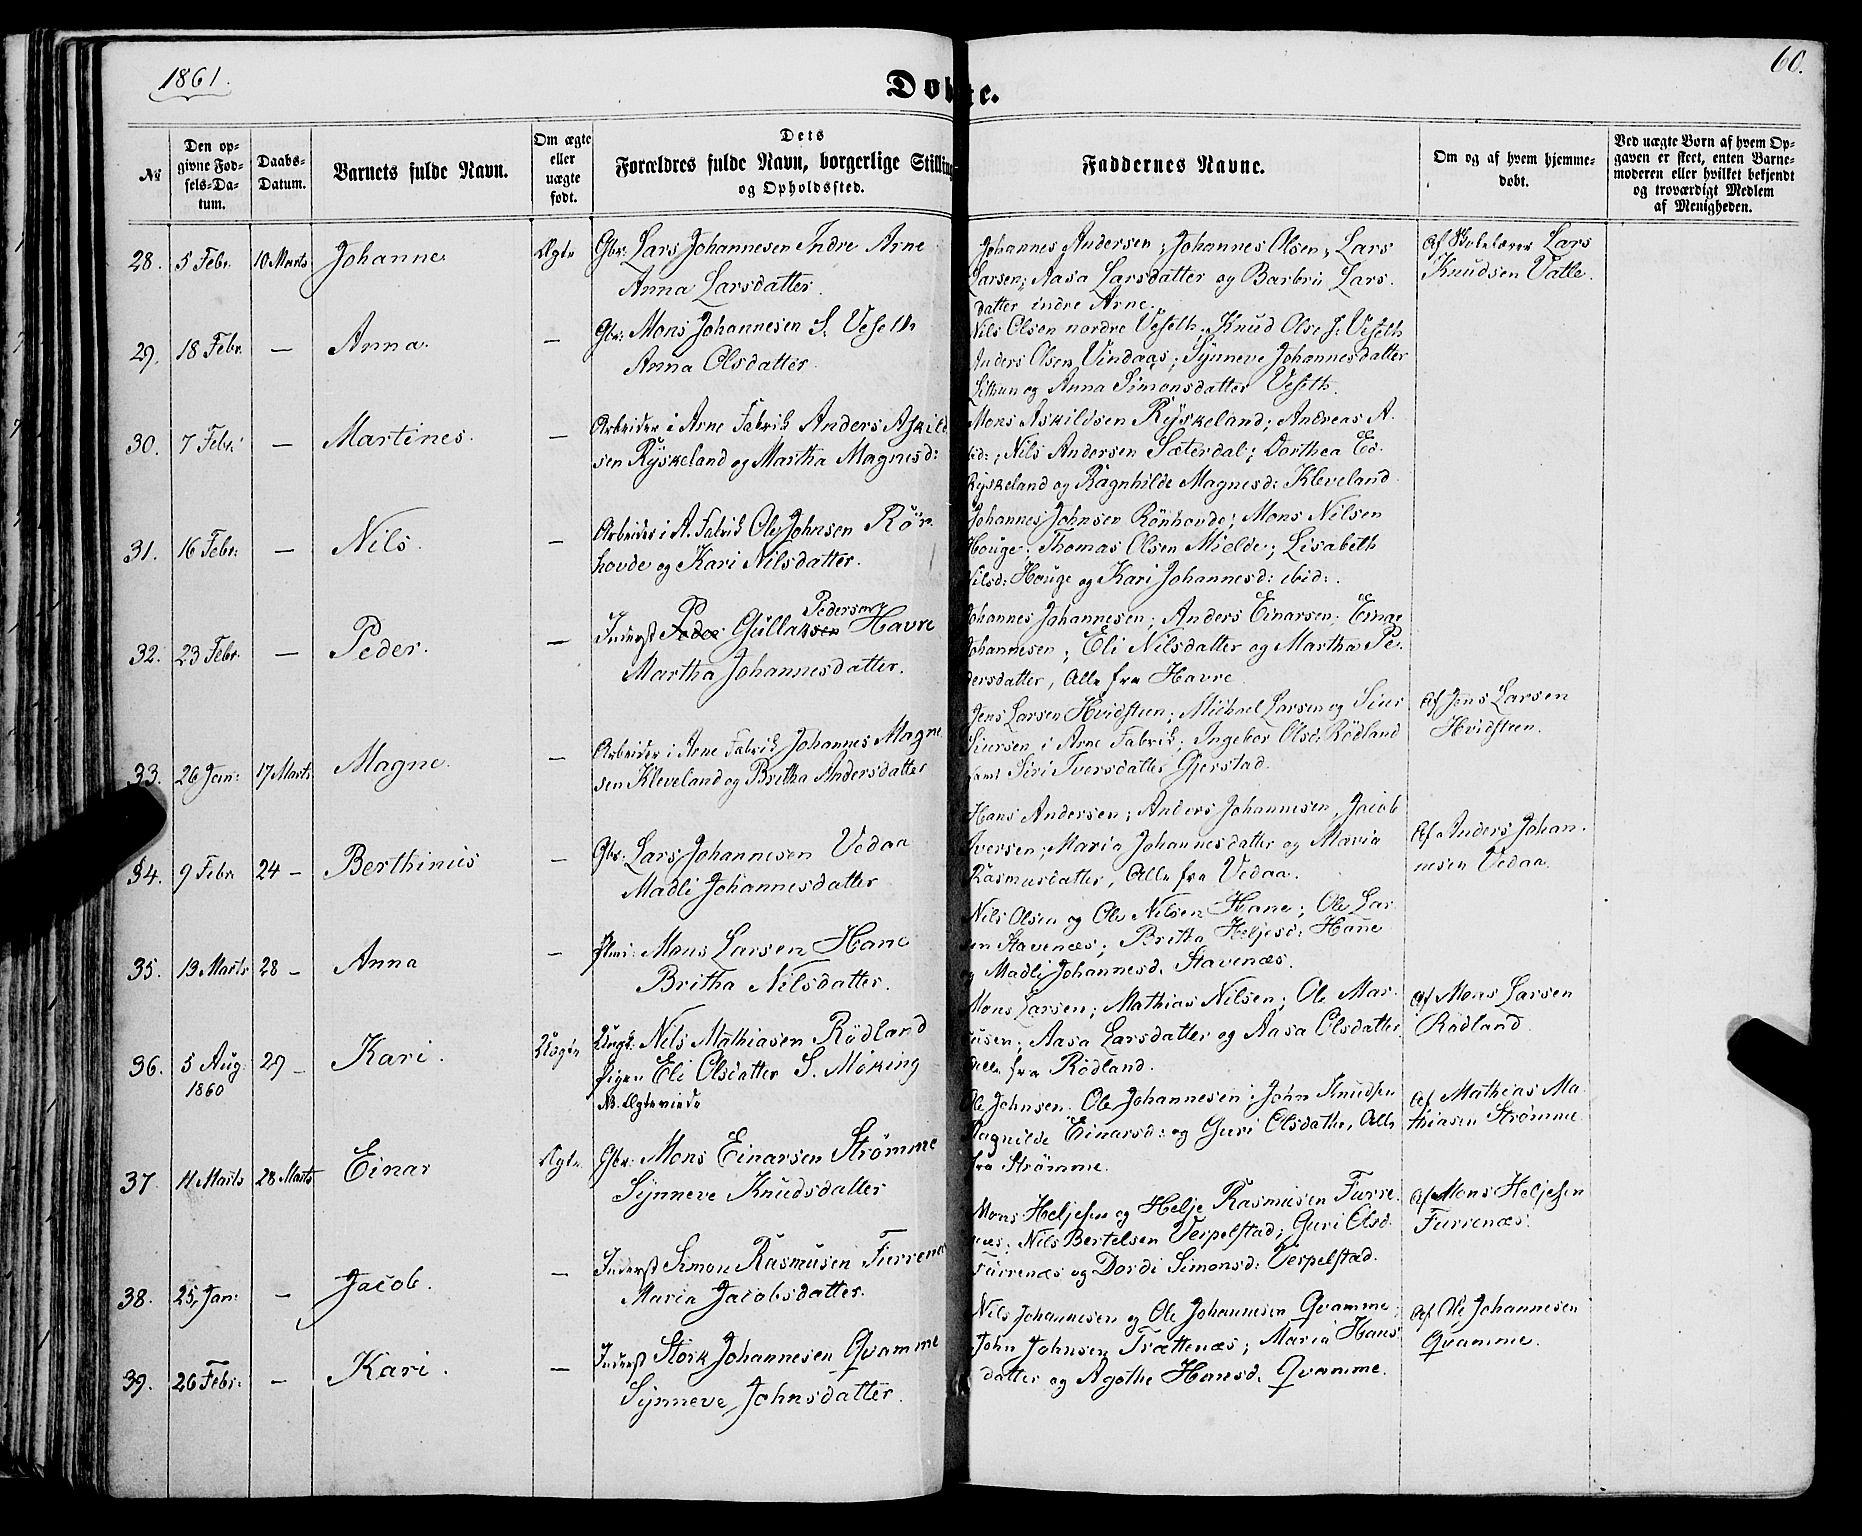 1861.
60.
Døbte.
№
Den opgivne Fødsels-Datum.
Daabs-Datum.
Barnets fulde Navn.
Om ægte eller uægte født.
Dets Forældres fulde Navn, borgerlige Stilling og Opholdssted.
Faddernes Navne.
Om og af hvem hjemmedøbt.
Ved uægte Børn af hvem Opgaven er skeet, enten Barnemoderen eller hvilket bekjendt og troværdigt Medlem af Menigheden.
28. 5 Febr. 10 Marts Johanne Ægte
Gbr: Lars Johannesen Indre Arne
Anna Larsdatter.
Johannes Andersen; Johannes Olsen; Lars
Larsen; Aasa Larsdatter og Barbru Lars
datter indre Arne.
Af Skolelærer Lars
Knudsen Valle.
29. 18 Febr. — Anna. —
Gbr: Mons Johannesen S. Veseth
Anna Olsdatter.
Nils Olsen nordre Veseth, Knud Olse s. Veseth
Anders Olsen Vindaas; Synneve Johannesdatter
og Anna Simonsdatter Veseth.
30. 7 Febr: — Martines. —
Arbeider i Arne Fabrik Anders Askild
sen Ryskeland og Martha Magnesd:
Mons Askildsen Ryskeland; Andreas A.
ibid:; Nils Andersen Sæterdal; Dorthea Ed.
Ryskeland og Ragnhilde Magnesd: Kleveland
31. 16 Febr: — Nils. —
Arbeider i A. Fabrik Ole Johnsen Røn
hovde og Kari Nilsdatter.
Johannes Johnsen Rønhovde; Mons Nilsen
Houge; Thomas Olsen Mielde; Lisabeth
Nilsd: Houge og Kari Johannesd: ibid:.
32. 23 Febr. — Peder. —
Pedersen
Inderst Peder Gullaksen Havre
Martha Johannesdatter.
Johannes Johannesen; Anders Einarsen;
Johannesen; Eli Nilsdatter og Martha Pe
dersdatter, Alle fra Havre.
33. 26 Jan: 17 Marts Magne. —
Arbeider i Arne Fabrik Johannes Magne
sen Kleveland og Britha Andersdatter
Jens Larsen Hvidsteen; Michael Larsen og Siur
Siursen i Arne Fabrik; Ingebor Olsd: Rødland
samt Siri Iversdatter Gjerstad.
Af Jens Larsen
Hvidsteen.
34. 9 Febr. 24 — Berthinius —
Gbr: Lars Johannesen Vedaa
Madli Johannesdatter
Hans Andersen; Anders Johannesen, Jacob
Iversen; Maria Johannesdatter og Maria
Rasmusdatter, Alle fra Vedaa.
Af Anders Johan
nesen Vedaa.
35. 13 Marts 28 — Anna —
Mons Larsen Hane
Britha Nilsdatter.
Nils Olsen og Ole Nilsen Hane; Ole Lar
sen Stavenæs; Britha Heljesd: Hane
og Madli Johannesd. Stavenæs.
36. 5 Aug. 1860 29 — Kari. Uægte
Ungk: Nils Mathiasen Rødland
Pigen Eli Olsdatter S. Møking
NB. Ægteviede
Mons Larsen; Mathias Nilsen; Ole Mar
cusen; Aasa Larsdatter og Aasa Olsdatter
alle fra Rødland.
Af Mons Larsen
Rødland.
37. 11 Marts 28 Marts Einar Ægte
Gbr: Mons Einarsen Strømme
Synneve Knudsdatter
Ole Johnsen. Ole Johannesen; John Knudsen
Ragnilde Einarsd: og Guri Olsdatter, Alle
fra Strømme.
Af Mathias Ma
thiasen Strømme.
38. 25 Jan: — Jacob. —
Inderst Simon Rasmusen Furrenæs
Maria Jacobsdatter.
Mons Heljesen og Helje Rasmusen Furre
næs; Nils Bertelsen Verpelstad; Guri Olsd.
Furrenæs og Dordi Simonsd: Verpelstad.
Af Mons Heljesen
Furrenæs.
39. 26 Febr: — Kari. —
Inderst Størk Johannesen Qvamme
Synneve Johnsdatter.
Nils Johannesen og Ole Johannesen Qvamme;
John Johnsen Trættenæs; Maria Hans
datter og Agothe Hansd. Qvamme.
Af Ole Johannesen
Qvamme.